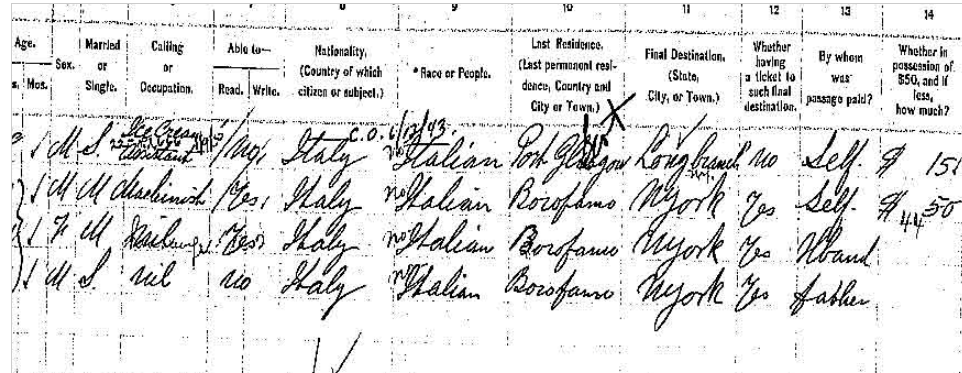 7 8 9 10 11 12 13 14
Age. Sex. Married or Single. Calling or Occupation. Able to— Nationality, (Country of which citizen or subject.) *Race or People. Last Residence. (Last permanent residence, Country and City or Town.) Final Destination. (State, City, or Town.) Whether having a ticket to such final destination. By whom was passage paid? Whether in possession of $50, and if less, how much?
Mos. Read. Write.
C.O. 6/12/43. X
M S Ice Cream Assistant No Italy Italian Port Glasgow Longbranch no Self. $ 15
M M Machinist Yes Italy no Italian Borofamo NYork Yes Self. $ 50
44
F M Yes Italy no Italian Borofamo NYork Yes Hband
M S nil no Italy Italian Borofamo NYork Yes father